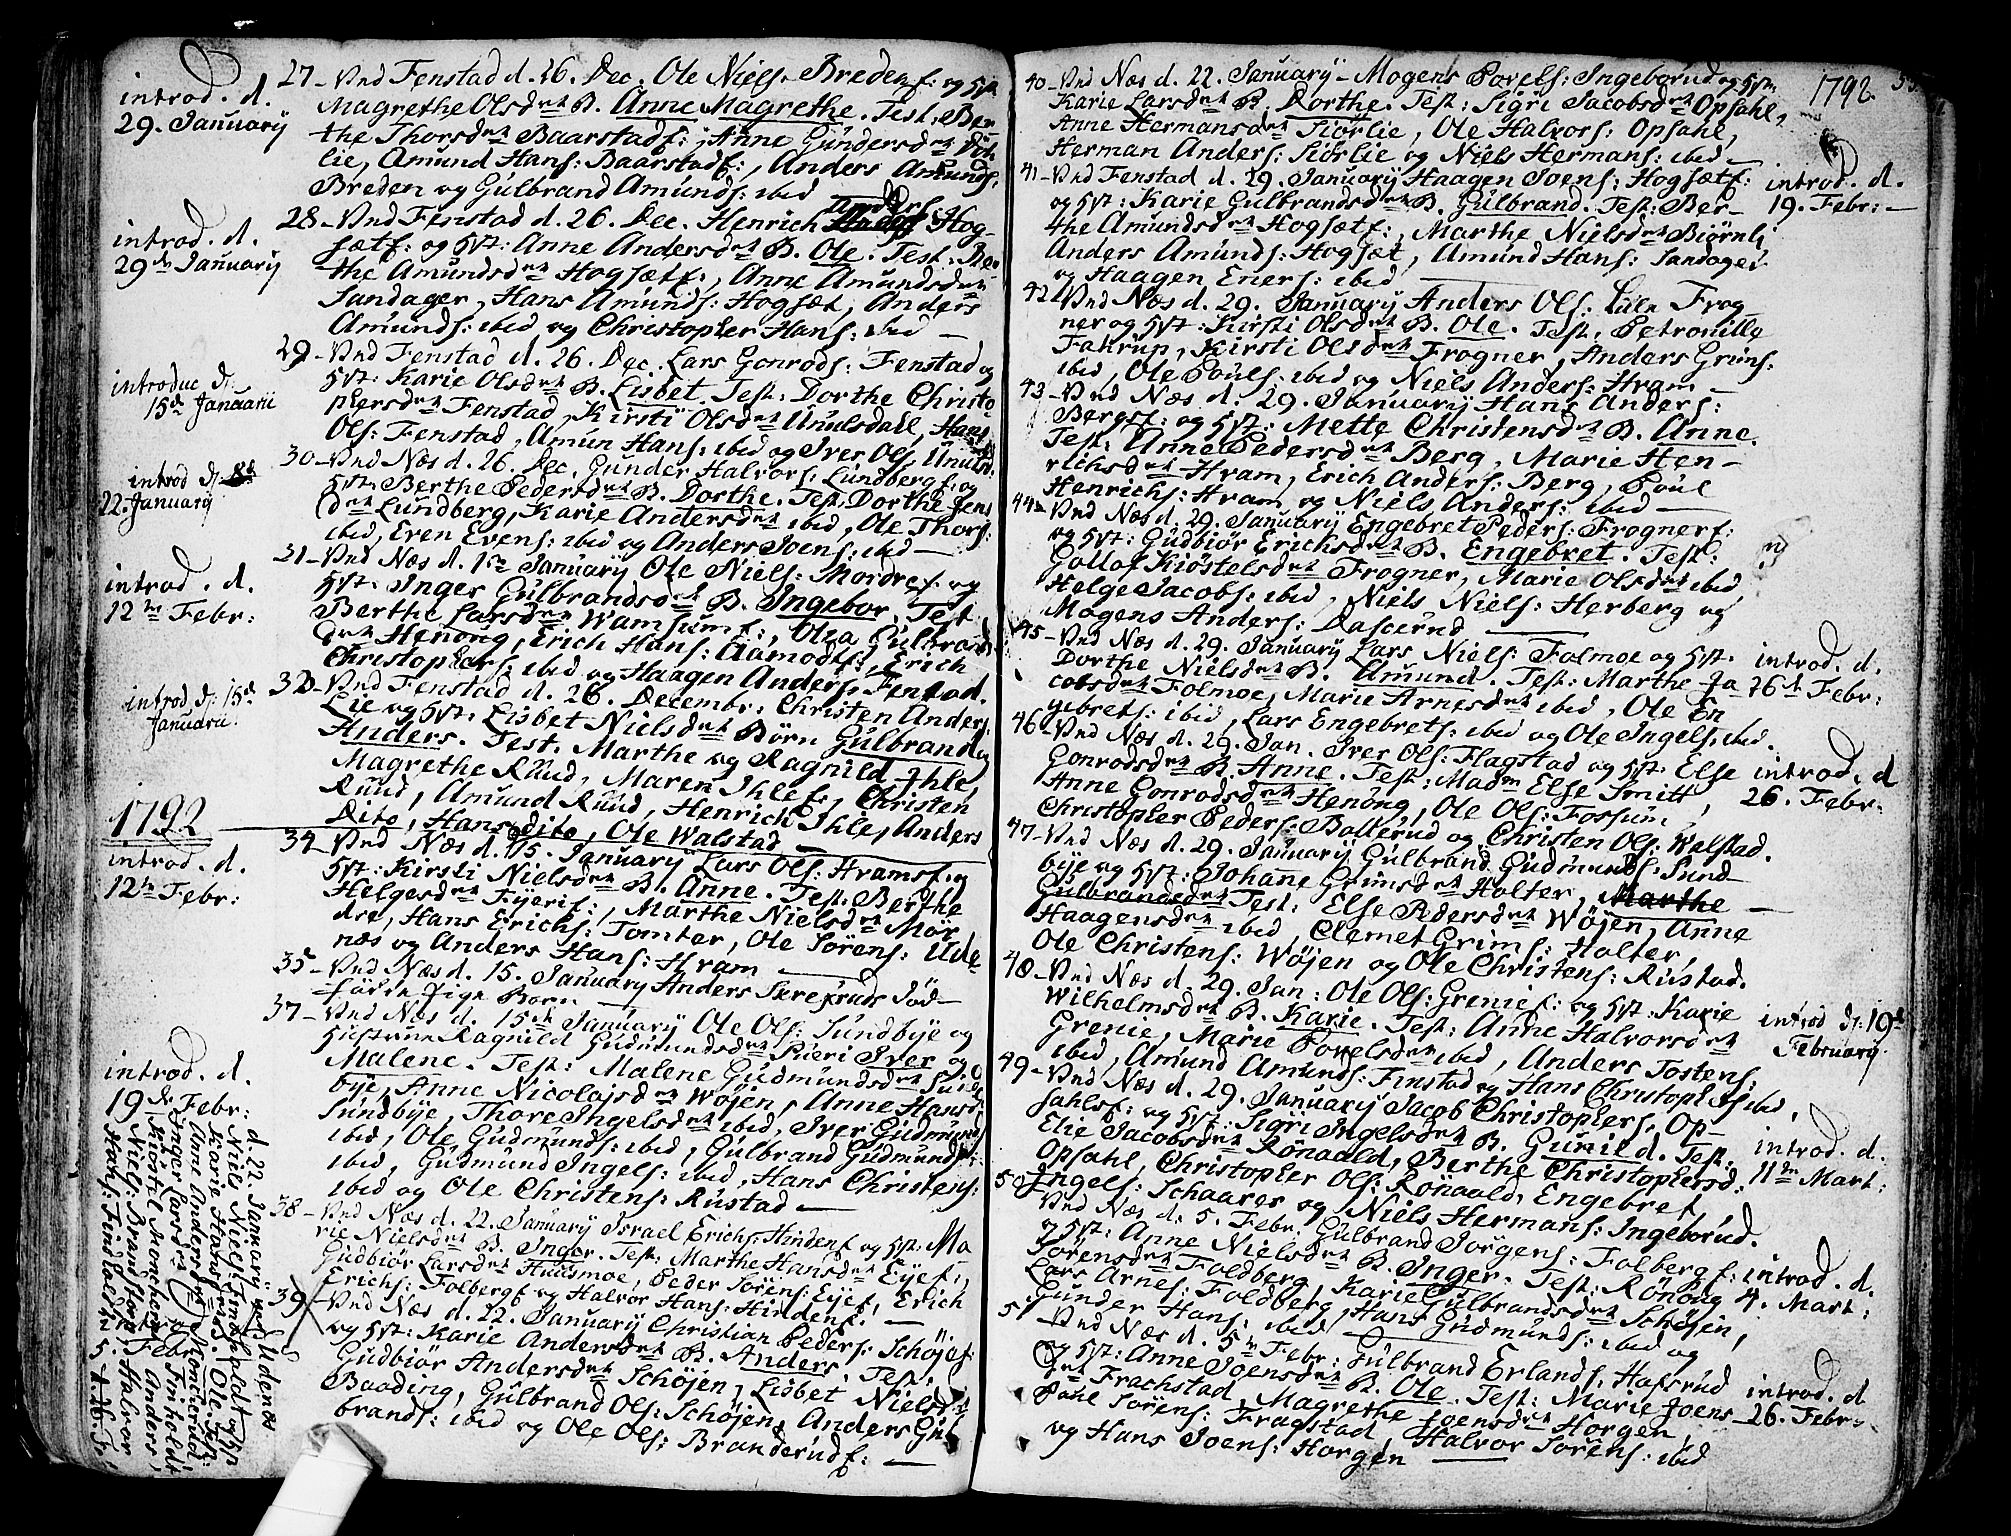 introd. d.
29. January
27- Und Fenstad d. 26. Dec. Ole Niels. Bredenf: og Hst
Magrethe Olsdtr B. Anne Magrethe. Test. Ber
the Thorsdtr Baarstadf: Anne Gundersdtr
lie, Amund Hans: Baarstadf:, Anders Amunds,
Breden og Gulbrand Amunds: ibid
introd. d.
29de January
28- Und Fenstad d. 26. Dec. Henrich Anders Hog-
sætf: og Hst: Anne Andersdtr B. Ole. Test: Be-
the Amundsdtr Hogsætf:, Anne Amundsdtr
Sandager, Hans Amunds: Hogsæt, Anders
Amunds: ibid og Christopher Hans: ibid
introduc d:
15de Januarii
29- Und Fenstad d. 26. Dec. Lars Gonrods: Fenstad og
Hst: Karie Olsdtr B. Lisbet. Test: Dorthe Christo
phersdtr Fenstad, Kirsti Olsdtr Unulsdahl, Hans
Ols: Fenstad, Amun Hans: ibid og Iver Ols.
introd d: 8d
22. January
30- Und Næs d. 26. Dec. Gunder Halvors: Lundbergf: og
Hst: Berthe Pedersdtr B. Dorthe. Test: Dorthe Jens
dtr Lundberg, Karie Andersdtr ibid, Ole Thors:
ibid, Even Evens: ibid og Anders Joens: ibid
introd. d.
12te Febr:
31- Und Næs d. 1te January Ole Niels: Mordref og
Hst. Inger Gulbrandsdtr B. Ingebor, Test.
Berthe Larsdtr Wamsumf:, Olea Gulbrands
dtr Henong, Erich Hans: Aamodtf:, Erich
Christophers: ibid og Haagen Anders: Fenstad.
introd d: 15de
Januarii.
32- Und Fenstad d. 26. Decembr: Christen Anders:
Lie og Hst: Lisbet Nielsdtr Børn Gulbrand og
Anders. Test. Marthe og Ragnild Ihle,
Magrethe Ruud, Maren Ihlef:, Christen
Ruud, Amund Ruud, Henrich Ihle, Anders
Dito, Hans dito, Ole Walstad
1792
introd. d.
12te Febr:
34- Und Næs d. 15. January Lars Ols: Hramsf: og
Hst: Kirsti Nielsdtr B. Anne. Test: Berthe
Helgesdtr Fyerif:, Marthe Nielsdtr Mor
dre, Hans Erichs: Tomter, Ole Sörens: Ude
næs og Anders Hans: Hram
35- Und Næs d. 15. January Anders Skrexruds Död-
födde Pige Barn
introd. d.
19de Febr:
37- Und Næs d. 15de January Ole Ols: Sundbye og
Hustrue Ragnild Gudmundsdtr Iver og
Malene. Test: Malene Gudmundsdtr Sund
bye, Anne Nicolajsdtr Wøjen, Anne Hans
Sundbye, Thore Ingelsdtr ibid, Iver Gudmunds
ibid, Ole Gudmunds: ibid, Gulbrand Gudmunds:
ibid, Gudmund Ingels: ibid, Hans Christens:
ibid og Ole Christens: Rustad
38- Und Næs d. 22. January Israel Erichs: Hindenf og Hst: Ma
rie Nielsdtr B. Inger. Test: Marthe Hansdtr Eyef:,
Gudbiør Larsdtr Huusmoe, Peder Sörens: Eyef, Erich
Erichs: Folbergf og Halvor Hans: Hindenf.
39- Und Næs d. 22. January Christian Peders: Schöjef
og Hst: Karie Andersdtr B. Anders. Test:
Gudbiør Andersdtr Schöjen, Lisbet Niels
Baading, Gulbrand Ols: Schöjen, Anders Gul
brands: ibid og Ole Ols: Branderudf:
d. 22. January Udenæs
Niels Niels: Findhaldt og Hst
Karie Hansdtr B. Ole. Test:
Anne Andersdtr
Inger Larsdtr Findholdt
Kiöstel
Niels: Brandstorp, Halvor
1792.
40- Und Næs d. 22. January Mogens Povels: Ingeborud og Hst:
Karie Larsdtr B. Dorthe. Test: Sigri Jacobsdtr Opsahl,
Anne Hermansdtr Siörlie, Ole Halvors: Opsahl,
Herman Anders: Siörlie og Niels Hermans: ibid
41- Und Fenstad d. 29. January Haagen Joens: Hogsætf:
og Hst: Karie Gulbrandsdtr B. Gulbrand. Test: Ber-
the Amundsdtr Hogsætf:, Marthe Nielsdtr Biörnli
Anders Amunds: Hogsæt, Amund Hans: Sandager
og Haagen Eners: ibid
introd. d.
19. Febr:
42- Und Næs d. 29. January Anders Ols: Lille Frog
ner og Hst: Kirsti Olsdtr B. Ole. Test: Petronille
Fahrup, Kirsti Olsdtr Frogner, Anders Grims:
ibid, Ole Pouls: ibid og Niels Anders: Hram
43- Und Næs d. 29. January Hans Anders:
Bergsf: og Hst: Mette Christensdtr B. Anne.
Test: Anne Pedersdtr Berg, Marie Hen-
richsdtr Hram, Erich Anders: Berg, Poul
Henrichs: Hram og Niels Anders: ibid
44- Und Næs d. 29. January Engebret Peders: Frognerf:
og Hst: Gudbiør Ericksdtr B. Engebret. Test:
Gollaf Kiöstelsdtr Frogner, Marie Olsdtr ibid,
Helge Jacobs: ibid, Niels Niels: Herberg og
Mogens Anders: Daserud
45- Und Næs d. 29. January Lars Niels: Folmoe og Hst.
Dorthe Nielsdtr B. Amund. Test: Marthe Ja
cobsdtr Folmoe, Marie Arnesdtr ibid, Ole En
gebrets: ibid, Lars Engebrets: ibid og Ole Ingels: ibid.
introd. d.
26de Febr:
46- Und Næs d. 29. Jan. Iver Ols: Flagstad og Hst. Else
Gonrodsdtr B. Anne. Test: Madm Else Smitt,
Anne Conrodsdtr Henong, Ole Ols: Fossum,
Christopher Peders: Bollerud og Christen Ols: Walstad.
introd. d
26. Febr:
47- Und Næs d. 29. January Gulbrand Gudmunds: Sund
bye og Hst: Johane Grimsdtr Halter, Marthe
Gulbrandsdtr Test: Else Pedersdtr Wøjen, Anne
Haagensdtr ibid, Clemet Grims: Halter,
Ole Christens: Wøjen og Ole Christens: Rustad.
48- Und Næs d. 29. Jan: Ole Ols: Grenief: og Hst: Karie
Wilhelmsdtr B. Karie. Test: Anne Halvorsdtr
Grenie, Marie Povelsdtr ibid, Anders Tostens:
ibid, Amund Amunds: Finstad og Hans Christophers ibid,
introd d: 19d
February.
49- Und Næs d. 29. January Jacob Christophers: Op-
sahlsf: og Hst: Sigri Ingelsdtr B. Gunild. Test:
Elie Jacobsdtr Rönaald, Berthe Christophersd:
Opsahl, Christopher Ols: Rönaald, Engebret
Ingels: Schaarer og Niels Hermans: Ingeborud.
introd. d.
11te Mart:
50- Und Næs d: 5. Febr: Gulbrand Jörgens: Folbergf:
og Hst: Anne Nielsdtr B. Inger. Test: Rönoug
Sörensdtr Foldberg, Karie Gulbrandsdtr Schöjen,
Lars Arnes: Foldberg, Hans Gudmunds: ibid og
Gunder Hans: ibid
introd. d.
4. Mart:
51- Und Næs d. 5te Febr: Gulbrand Erlands: Hafsrud
og Hst: Anne Joensdtr B. Ole. Test: Marie Joens
dtr Frachstad, Magrethe Joensdtr Horgen,
Pohl Sörens: Fragstad, Halvor Sörens: ibid
og Hans Joens: Horgen
introd. d
26. Febr: